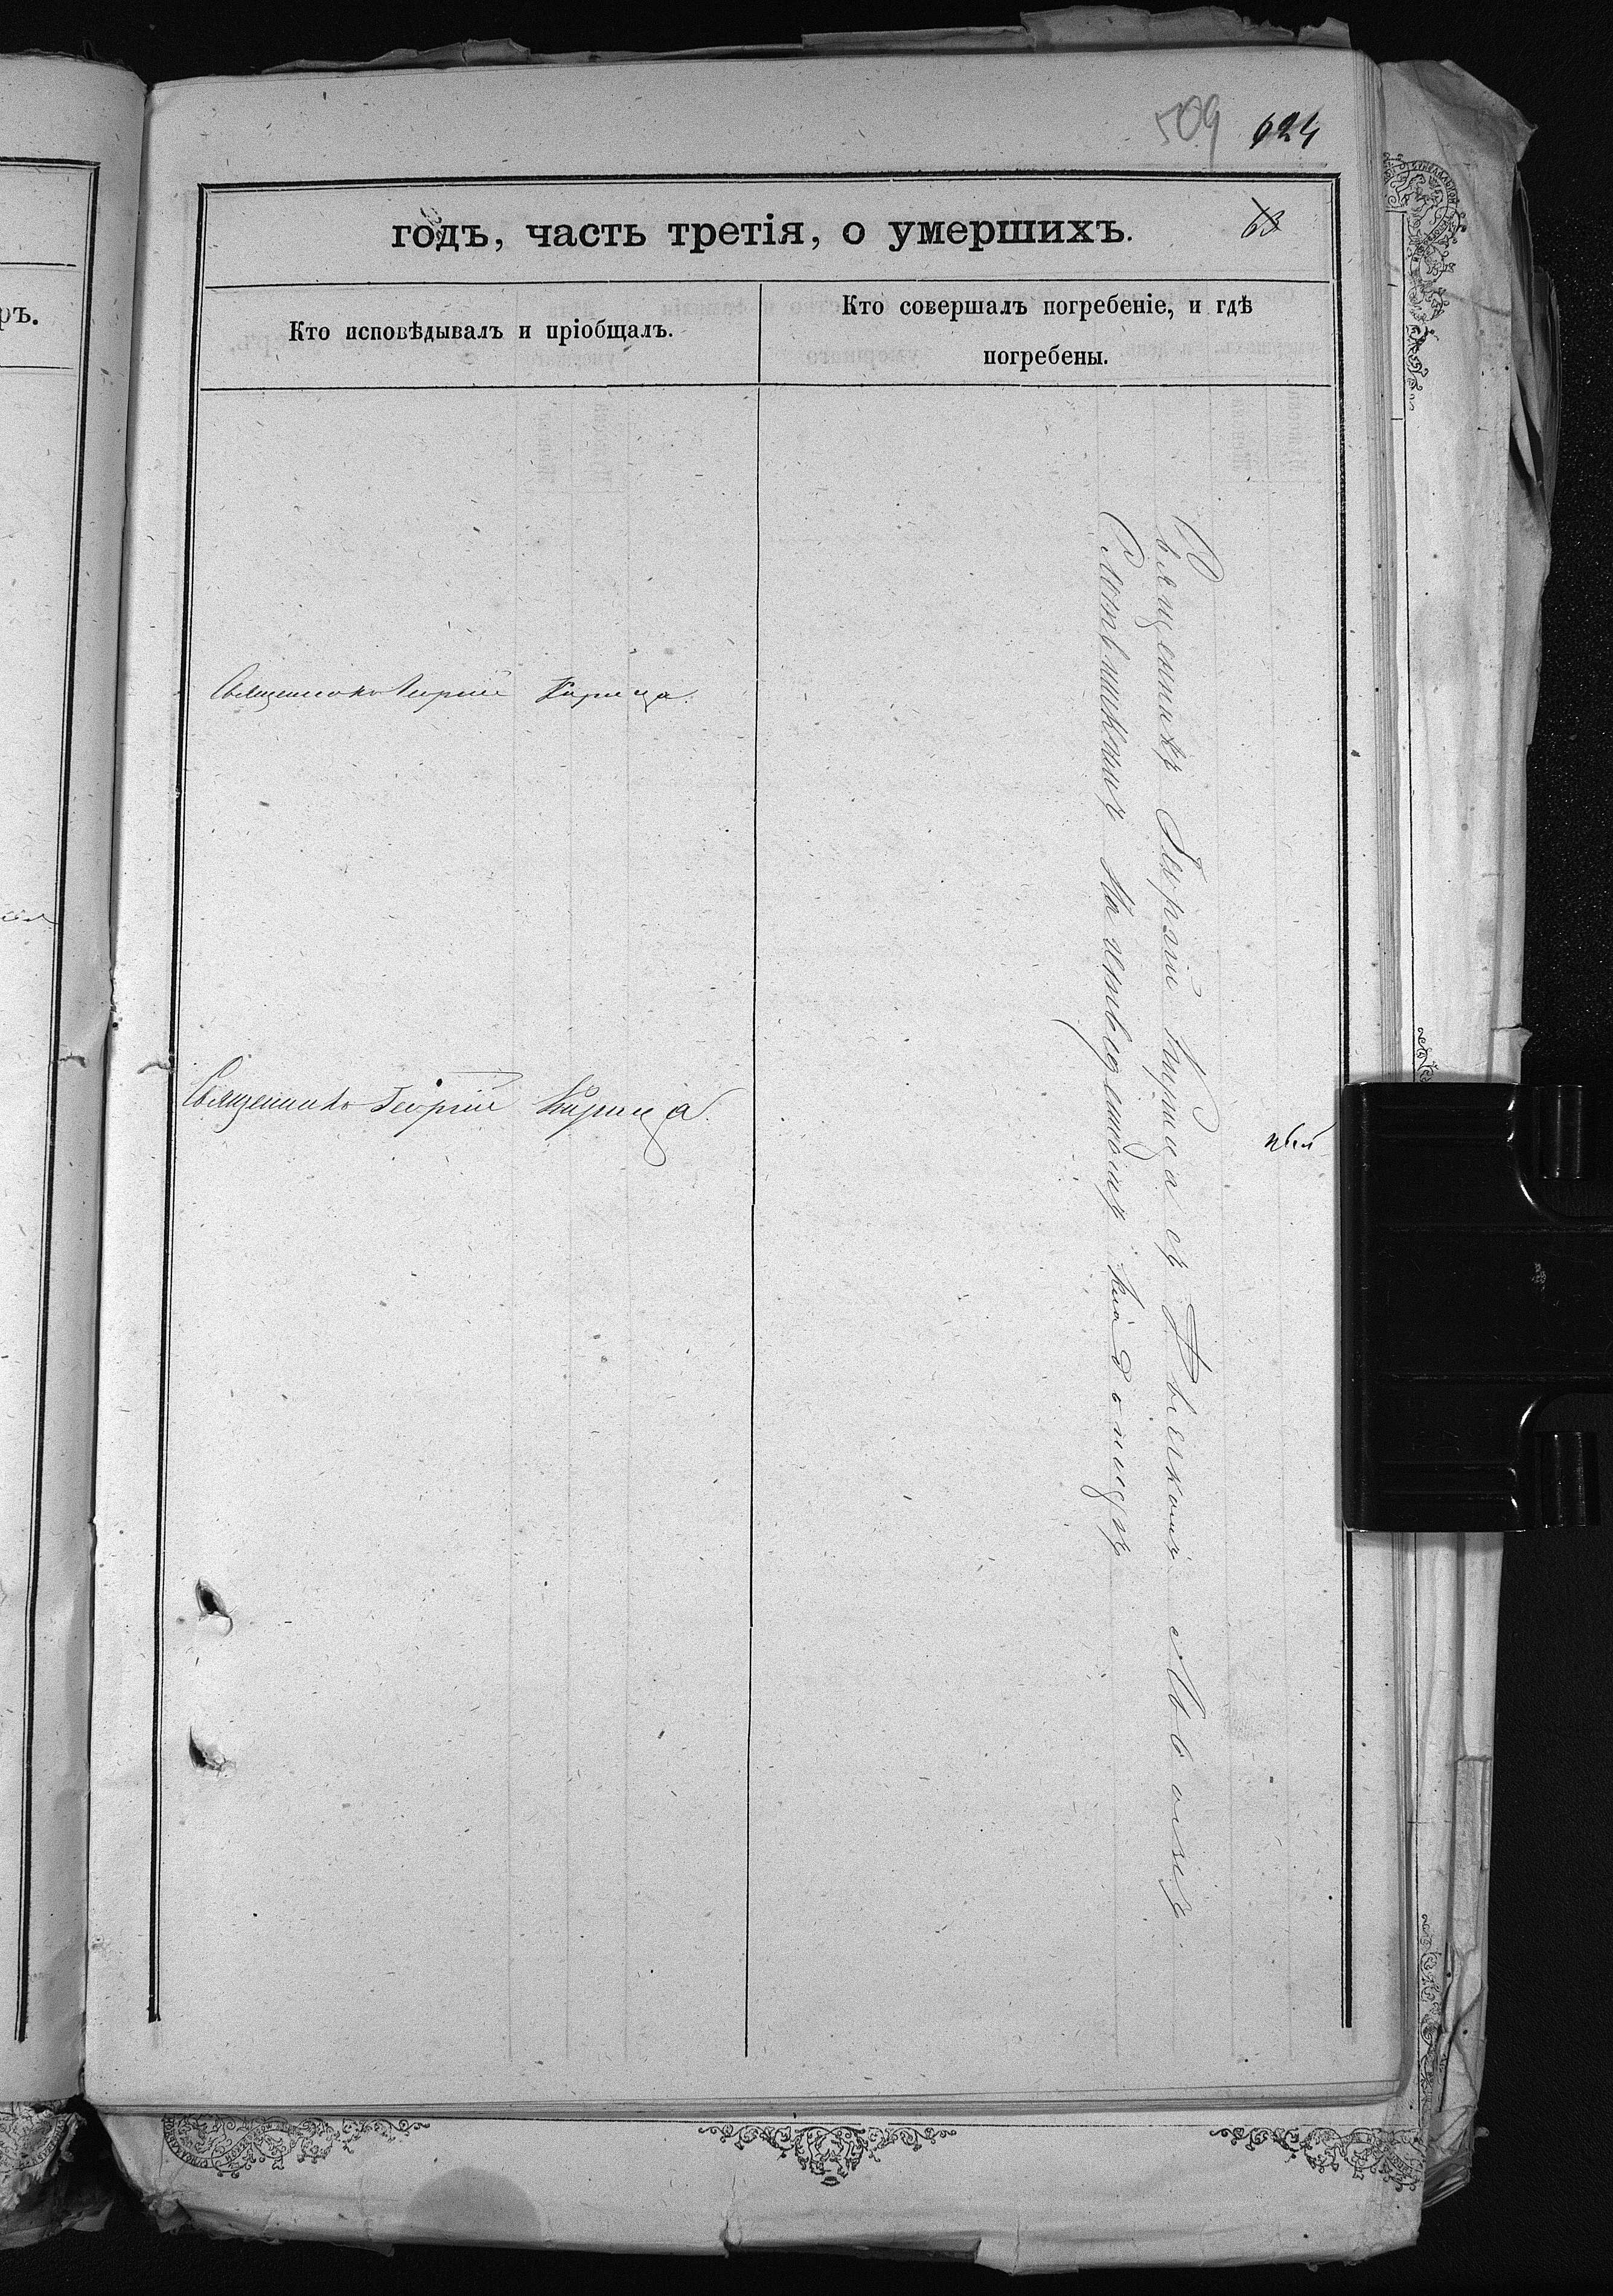 509 624
годъ, часть третія, о умершихъ.
63
Кто исповѣдывалъ и пріобщалъ.
Кто совершалъ погребеніе, и гдѣ
погребены.
ръ.
Священникъ Георгій Кирица.
Священникъ Георгій Кирица.
Священникъ Георгій Кирица съ
на кладбищѣ